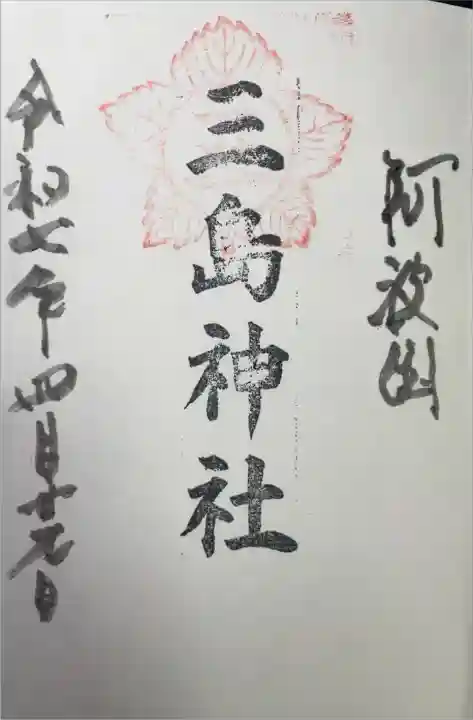 阿波国
三島神社
令和七年四月十九日